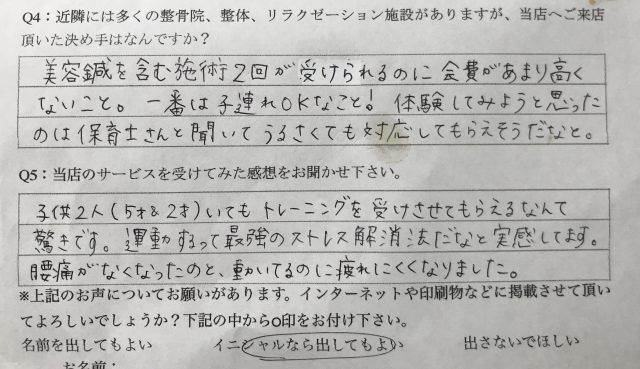 Q4：近隣には多くの整骨院、整体、リラクゼーション施設がありますが、当店へご来店
頂いた決め手はなんですか？
美容鍼を含む施術2回が受けられるのに会費があまり高く
ないこと。一番は子連れOKなこと！体験してみようと思った
のは保育士さんと聞いてうるさくても対応してもらえそうだなと。
Q5：当店のサービスを受けてみた感想をお聞かせ下さい。
子供2人（5才&2才）いてもトレーニングを受けさせてもらえるなんて
驚きです。運動するって最強のストレス解消法だなと実感してます。
腰痛がなくなったのと、動いてるのに疲れにくくなりました。
※上記のお声についてお願いがあります。インターネットや印刷物などに掲載させて頂い
てよろしいでしょうか？下記の中から○印をお付け下さい。
名前を出してもよい　イニシャルなら出してもよい　出さないでほしい
お名前：